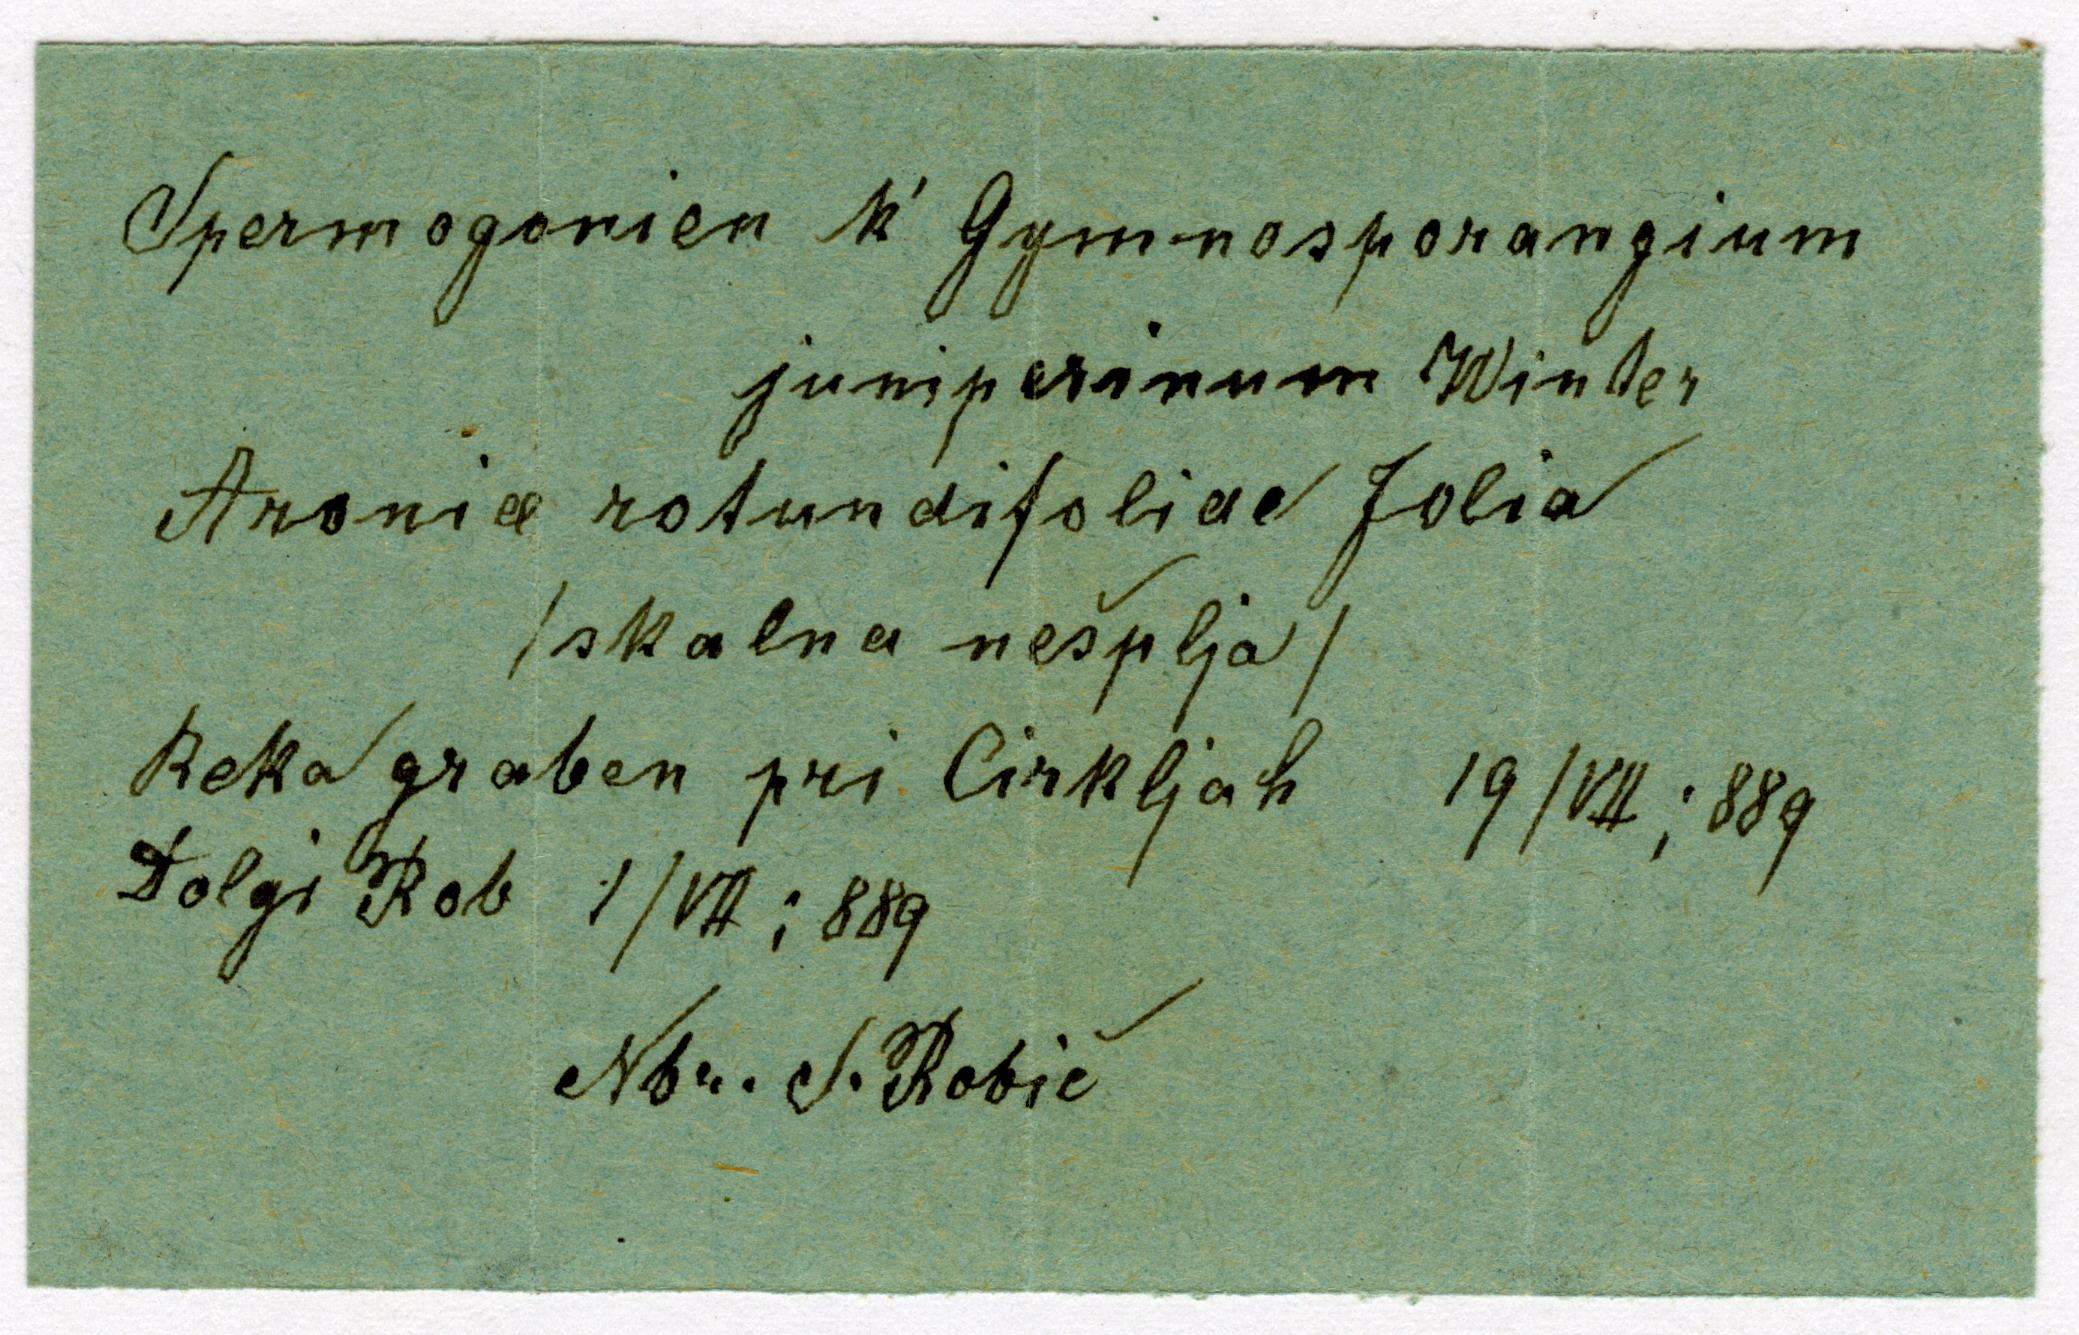 Spermogonien k' Gymnosporangium
juniperinum Winter
Aroniæ rotundifoliae folia
/skalna nešplja/
Reka graben pri Cirkljah 19/VII ; 889
Dolgi Rob 1/VII ; 889
Nbr. S. Robič